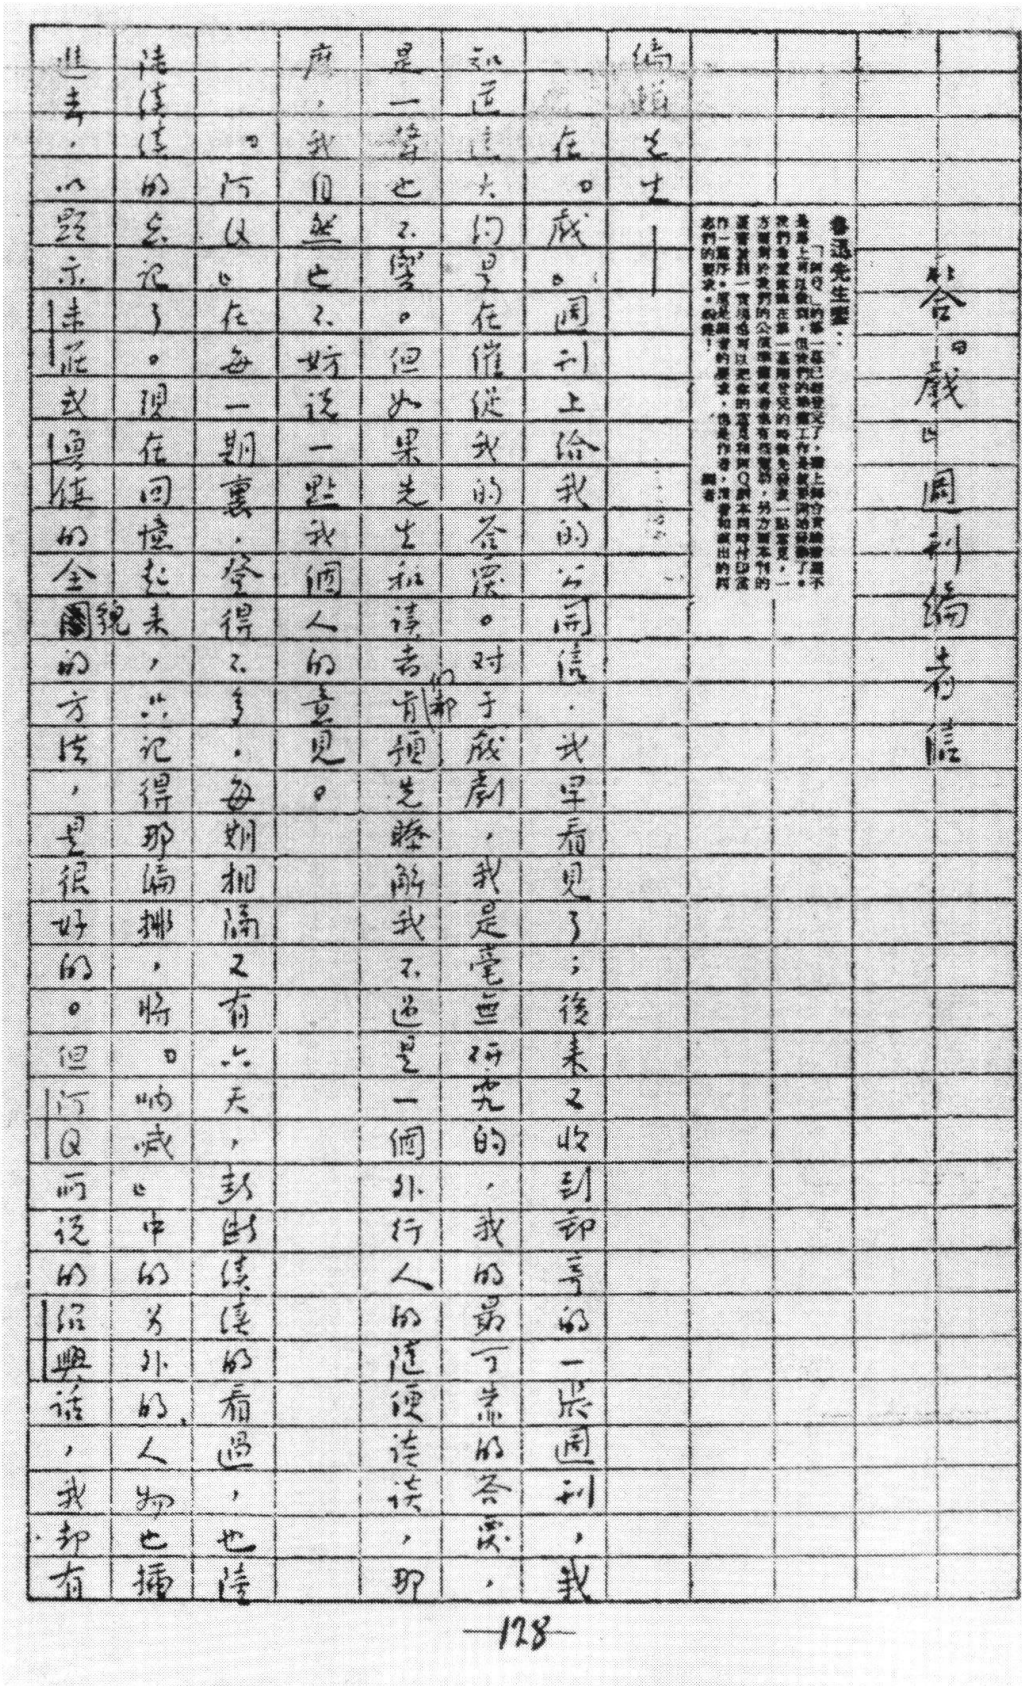 答『戲』周刊編者信
魯迅先生鑒：
「阿Q」的第一幕已經登完了，搬上舞台實驗雖還不
是馬上可以做到，但我們的準備工作是就要開始發動了。
我們希望你能在第一幕剛登完的時候先發表一點意見，一
方面對於我們的公演準備或者也有些幫助，另方面本刊的
叢書計劃一實現也可以把你的意見和阿Q劇本同時付印當
作一篇序。這是編者的要求，也是作者，讀者和演出的同
志們的要求。祝健！ 編者
編輯先生——
在『戲』週刊上給我的公開信，我早看見了；後來又收到郵寄的一張週刊，我
知道這大約是在催促我的答覆。对于戲劇，我是毫無研究的，我的最可靠的答覆，
是一聲也不響。但如果先生和讀者們都肯預先瞭解我不過是一個外行人的隨便談談，那
麽，我自然也不妨說一點我個人的意見。
『阿Q』在每一期裏，登得不多，每期相隔又有六天，斷斷續續的看過，也陸
陸續續的忘記了。現在回憶起來，只記得那編排，將『吶喊』中的另外的人物也插
進去，以顯示未莊或魯鎮的全貌的方法，是很好的。但阿Q所說的紹興話，我卻有
—128—